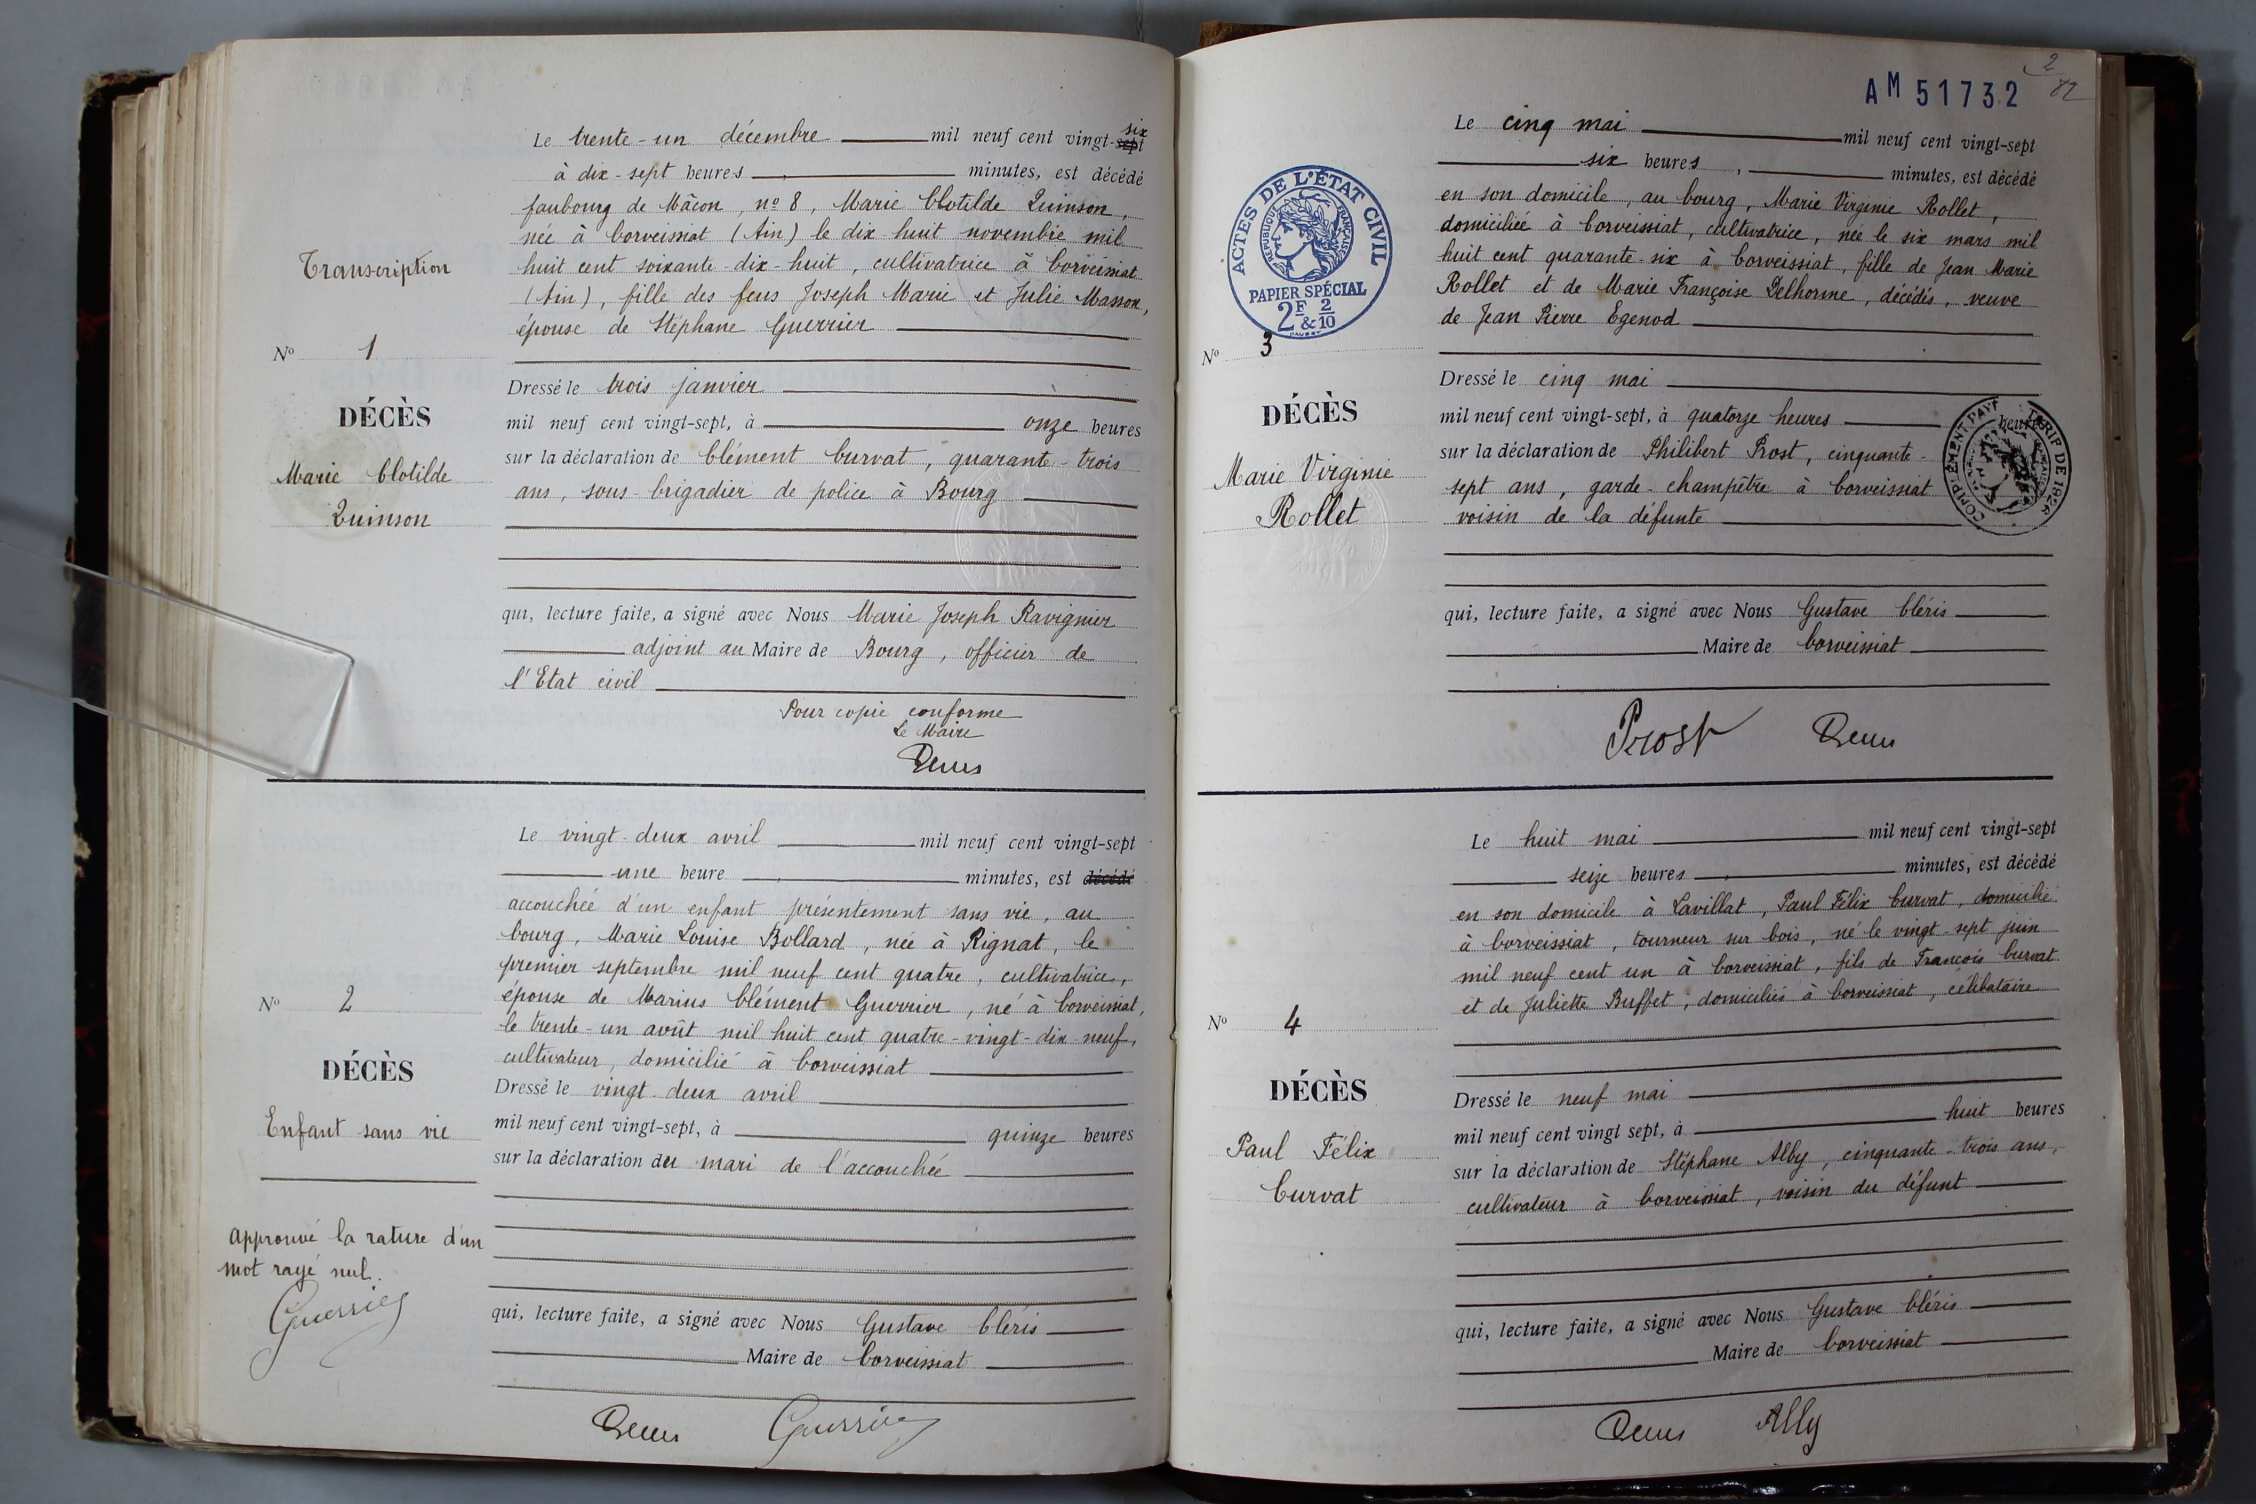 Le trente-un décembre mil neuf cent vingt-sept six
à dix-sept heures, minutes, est décédé
faubourg de Mâcon, nº 8, Marie Clotilde Quinson,
née à Corveissiat (Ain) le dix huit novembre mil
Transcription
huit cent soixante-dix-huit, cultivatrice à Corveissiat
(Ain), fille des feus Joseph Marie et Julie Masson,
épouse de Stéphane Guerrier
Nº 1
Dressé le trois janvier
DÉCÈS
mil neuf cent vingt-sept, à onze heures
sur la déclaration de Clément Curvat, quarante-trois
Marie Clotilde
ans, sous-brigadier de police à Bourg
Quinson
qui, lecture faite, a signé avec Nous Marie Joseph Ravignier
adjoint au Maire de Bourg, officier de
l'Etat civil
Pour copie conforme
Le Maire
Le vingt-deux avril mil neuf cent vingt-sept
une heure, minutes, est décédé
accouchée d'un enfant présentement sans vie, au
bourg, Marie Louise Bollard, née à Rignat, le
premier septembre mil neuf cent quatre, cultivatrice,
Nº 2
épouse de Marius Clément Guerrier, né à Corveissiat,
le trente-un août mil huit cent quatre-vingt-dix-neuf,
cultivateur, domicilié à Corveissiat
DÉCÈS
Dressé le vingt-deux avril
Enfant sans vie
mil neuf cent vingt-sept, à quinze heures
sur la déclaration du mari de l'accouchée
approuvé la rature d'un
mot rayé nul.
Guerrier
qui, lecture faite, a signé avec Nous Gustave Cléris
Maire de Corveissiat
Guerrier
2
82
AM 51732
Le cinq mai mil neuf cent vingt-sept
six heures, minutes, est décédé
ACTES DE L'ÉTAT CIVIL
RÉPUBLIQUE FRANÇAISE
PAPIER SPÉCIAL
2F & 2/10
en son domicile, au bourg, Marie Virginie Rollet,
domiciliée à Corveissiat, cultivatrice, née le six mars mil
huit cent quarante-six à Corveissiat, fille de Jean Marie
Rollet et de Marie Françoise Delhorme, décédés, veuve
de Jean Pierre Egenod
Nº 3
Dressé le cinq mai
DÉCÈS
mil neuf cent vingt-sept, à quatorze heures heures
COMPLÉMENT PAYÉ TARIF DE 1926
sur la déclaration de Philibert Prost, cinquante-
Marie Virginie
sept ans, garde-champêtre à Corveissiat
Rollet
voisin de la défunte
qui, lecture faite, a signé avec Nous Gustave Cléris
Maire de Corveissiat
Prost
Le huit mai mil neuf cent vingt-sept
seize heures, minutes, est décédé
en son domicile à Lavillat, Paul Félix Curvat, domicilié
à Corveissiat, tourneur sur bois, né le vingt-sept juin
mil neuf cent un à Corveissiat, fils de François Curvat
et de Juliette Buffet, domiciliés à Corveissiat, célibataire
Nº 4
DÉCÈS
Dressé le neuf mai
mil neuf cent vingt sept, à huit heures
Paul Félix
sur la déclaration de Stéphane Alby, cinquante-trois ans,
Curvat
cultivateur à Corveissiat, voisin du défunt
qui, lecture faite, a signé avec Nous Gustave Cléris
Maire de Corveissiat
Alby